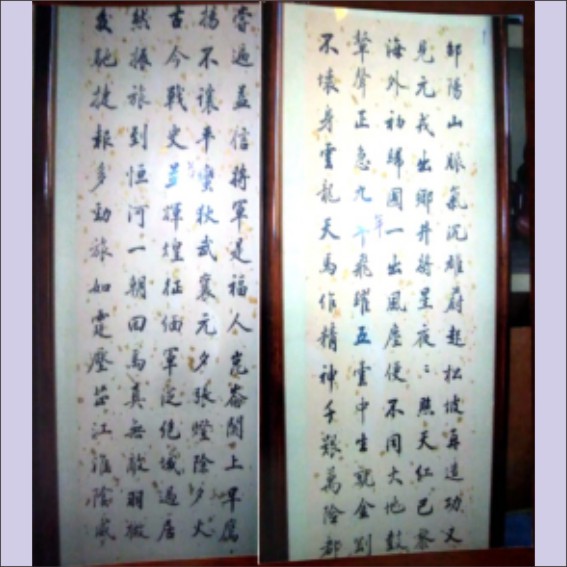 邵陽山脈氣沉雄蔚起松坡再造功又
見元戎出鄉井將星夜〻照天紅已
海外初歸國一出風塵便不同大地鼓
鼙聲正急九飛躍五雲中生就金剛
不壞身雲龍天馬作精神千艱萬險都
嘗遍益信將軍是福人崑崙關上早鷹
揚不讓平蠻狄武襄元夕張燈除夕火
古今戰史並輝煌征緬軍從絕域過居
然振旅到恒河一朝回馬真無敵羽檄
交馳捷報多勁旅如雲壓芷江淮陰威